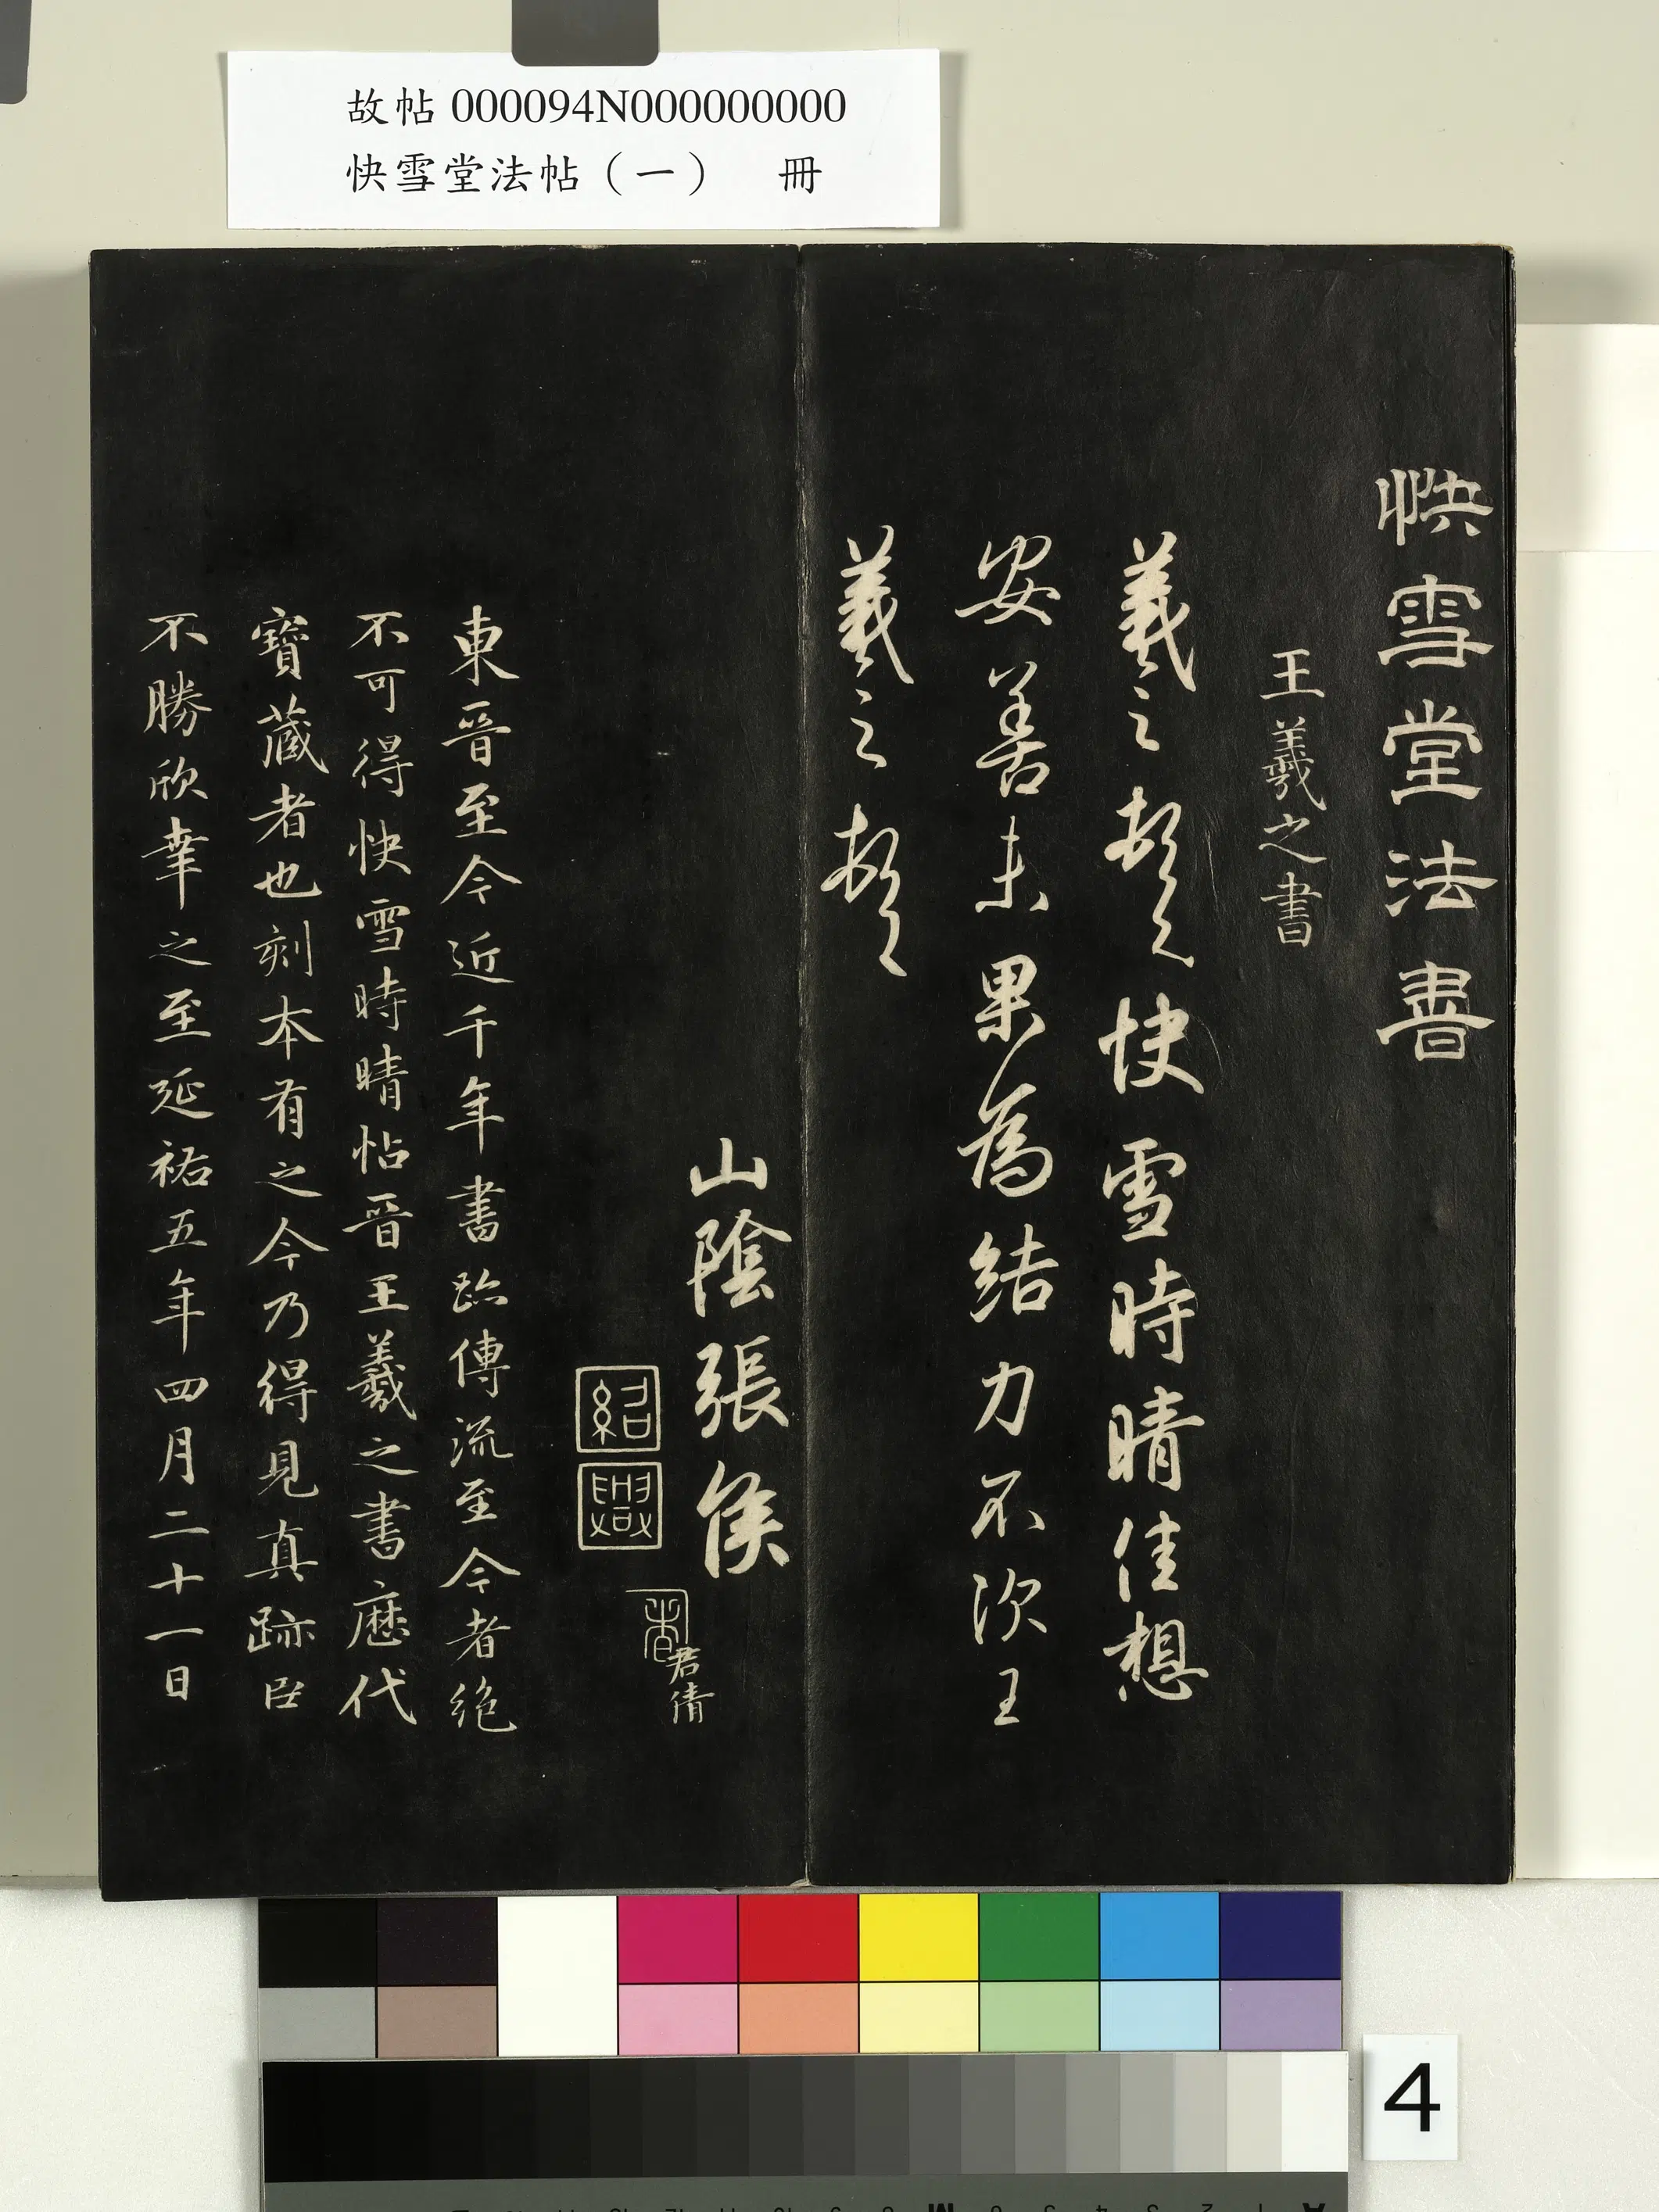 故帖 000094N000000000
快雪堂法帖（一） 冊
快雪堂法書
王羲之書
羲之頓首快雪時晴佳想
安善未果為結力不次王
羲之頓首
山陰張侯
君倩
紹興
東晉至今近千年書跡傳流至今者絕
不可得快雪時晴帖晉王羲之書歷代
寶藏者也刻本有之今乃得見真跡臣
不勝欣幸之至延祐五年四月二十一日
4